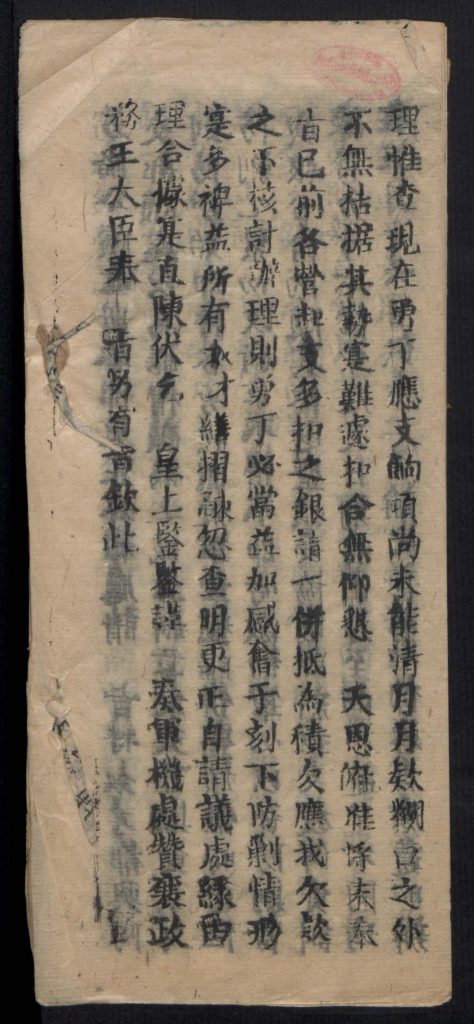 理惟查現在勇丁應支餉項尚未能清月月欵糊口之外
不無拮据其勢寔難遽扣合無仰懇 天恩俯准將未奉
旨已前各營扣支多扣之銀請一併抵為積欠應找欠欵
之下核計辦理則勇丁必當益加感奮于刻下防剿情形
寔多裨益所有奴才繕摺疎忽查明更正自請議處緣由
理合據寔直陳伏乞 皇上鑒鑒謹 奏軍機處贊襄政
務王大臣奉 旨另有旨欽此